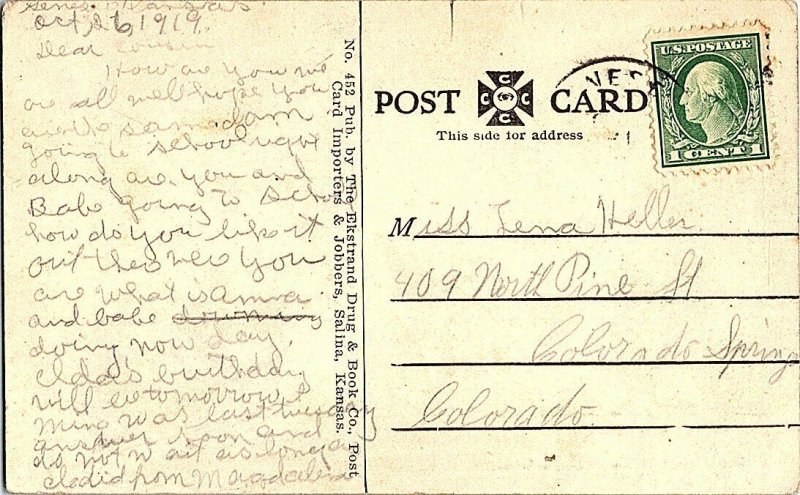 Kansas
Oct, 26, 1919.
Dear cousin
How are you we
are all well hope you
are the sam i dam
going to school right
along are you and
Babe going to
how do you like it
out there were you
are what is anna
and babe
doing now day.
Elda's birthday
will be tomorrow
mine was last tuesday
answer soon and
do not wait as long as
i did from Magdalena
No. 452 Pub. by The Ekstrand Drug & Book Co., Post
Card Importers & Jobbers, Salina, Kansas.
POST CARD
C C C C
This side for address
NES
U.S. POSTAGE
1 CENT 1
Miss Lena Heller.
409 North Pine St
Colorado Springs
Colorado.